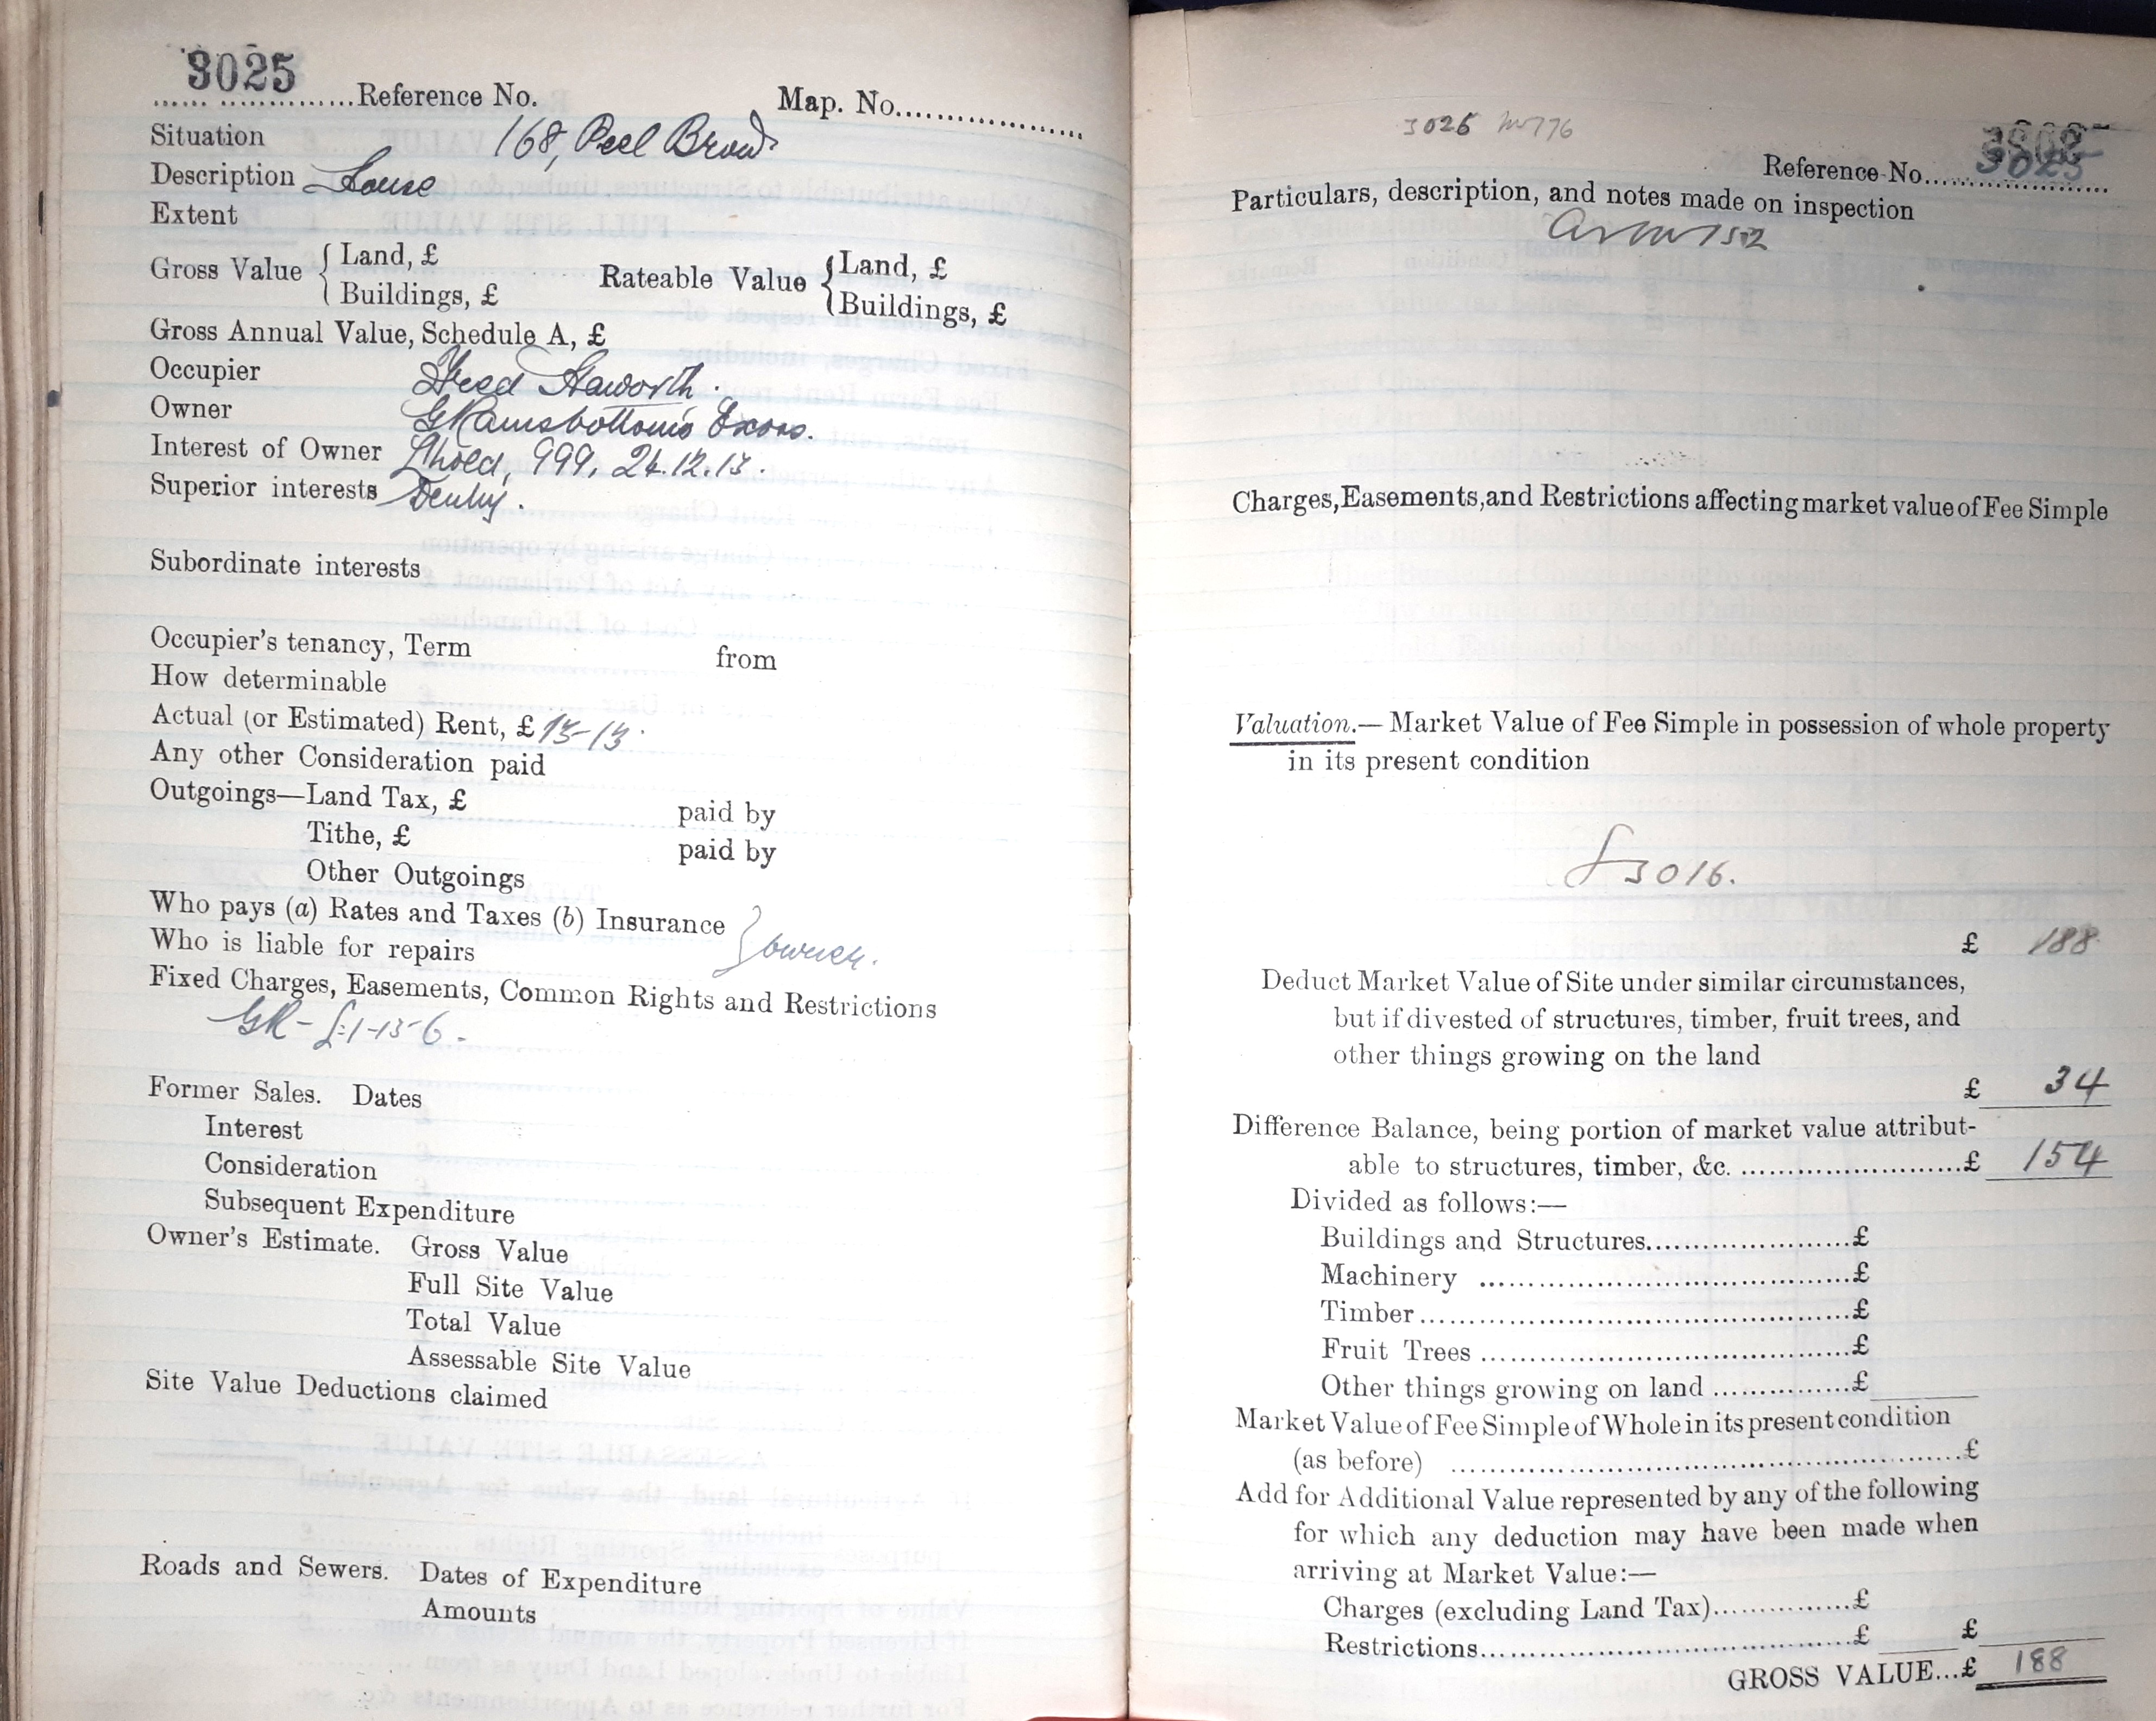 3025 Reference No. Map. No.
Situation 168, Peel Brow
Description House
Extent
Gross Value { Land, £ Rateable Value { Land, £
Buildings, £ Buildings, £
Gross Annual Value, Schedule A, £
Occupier Fred Haworth.
Owner G Ramsbottom's Exors.
Interest of Owner L'hold, 999, 24.12.13.
Superior interests Denby.
Subordinate interests
Occupier's tenancy, Term from
How determinable
Actual (or Estimated) Rent, £ 13-13.
Any other Consideration paid
Outgoings—Land Tax, £ paid by
Tithe, £ paid by
Other Outgoings
Who pays (a) Rates and Taxes (b) Insurance
Who is liable for repairs } owner.
Fixed Charges, Easements, Common Rights and Restrictions
GR - £1-13-6.
Former Sales. Dates
Interest
Consideration
Subsequent Expenditure
Owner's Estimate. Gross Value
Full Site Value
Total Value
Assessable Site Value
Site Value Deductions claimed
Roads and Sewers. Dates of Expenditure
Amounts
3025
Reference No. 3025
Particulars, description, and notes made on inspection
Charges, Easements, and Restrictions affecting market value of Fee Simple
Valuation.— Market Value of Fee Simple in possession of whole property
in its present condition
£3016.
£ 188
Deduct Market Value of Site under similar circumstances,
but if divested of structures, timber, fruit trees, and
other things growing on the land
£ 34
Difference Balance, being portion of market value attribut-
able to structures, timber, &c. £ 154
Divided as follows:—
Buildings and Structures £
Machinery £
Timber £
Fruit Trees £
Other things growing on land £
Market Value of Fee Simple of Whole in its present condition
(as before) £
Add for Additional Value represented by any of the following
for which any deduction may have been made when
arriving at Market Value:—
Charges (excluding Land Tax) £
Restrictions £ £
GROSS VALUE...£ 188